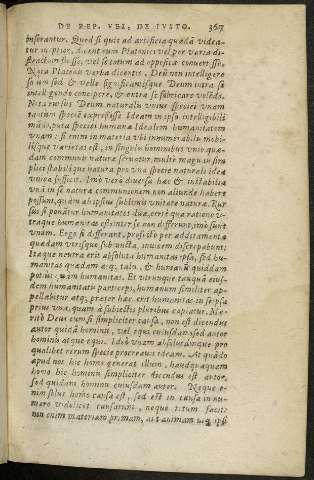 DE REP. VEL, DE IVSTO. 367
inserantur. Quod si quis ad artificia quædā videa-
tur
Nota Platonis verba dicentis, Deū non intelligere
so um sed & velle significantisque Deum intra se
intelligendo concipere, & extra se fabricare volēdo.
Nota rursus Deum naturalis vnius speciei vnam
tantum specie expressisse Ideam in ipso intelligibili
mūdo, puta speciei humanæ Idealem humanitatem
vnam: si enim in materia vbi innumerabilis mobi-
lisque varietas est, in singulis hominibus vnio quæ-
dam communis naturæ seruatur, multo magis in sim-
plici stabilique natura pro vna specie naturali idea
vnica sufficit. Imò verò diuersa hæc & instabilia
vnā in se naturæ communionem non aliunde habere
possunt, quàm ab ipsius sublimis vnitate naturæ. Rur
sus si ponātur humanitates duæ, certè qua ratione v-
traque humanitas est, inter se non differunt, imò sunt
vnum. Ergo si differant, profectò per additamenta
quædam vtrisque subiuncta, inuicem discrepabunt;
Itaque neutra erit absoluta humanitas ipsa, sed hu-
manitas quædam atq; talis, & humanū quiddam
potius quàm humanitas. Et vtrunque tanquā eius-
dem humanitatis particeps, humanum similiter ap-
pellabitur atq; præter hæc erit humanitas in seipsa
prius vna, quàm à subiectis pluribus capiatur. Me-
ritò Deus cum sit simpliciter causa, non est dicendus
autor quidā hominis, vel equi cuiusdam sed autor
hominis atque equi. Ideò vnam absolutamque pro
qualibet rerum specie procreauit ideam. At quādo
apud nos hic homo generat illum, haudquaquam
homo hic hominis simpliciter dicendus est autor,
sed quidam hominis cuiusdam autor. Neque e-
nim solus homo causa est, sed est in causa in nu-
mero videlicet causarum, neque totum facit:
non enim materiam primam, aut animam